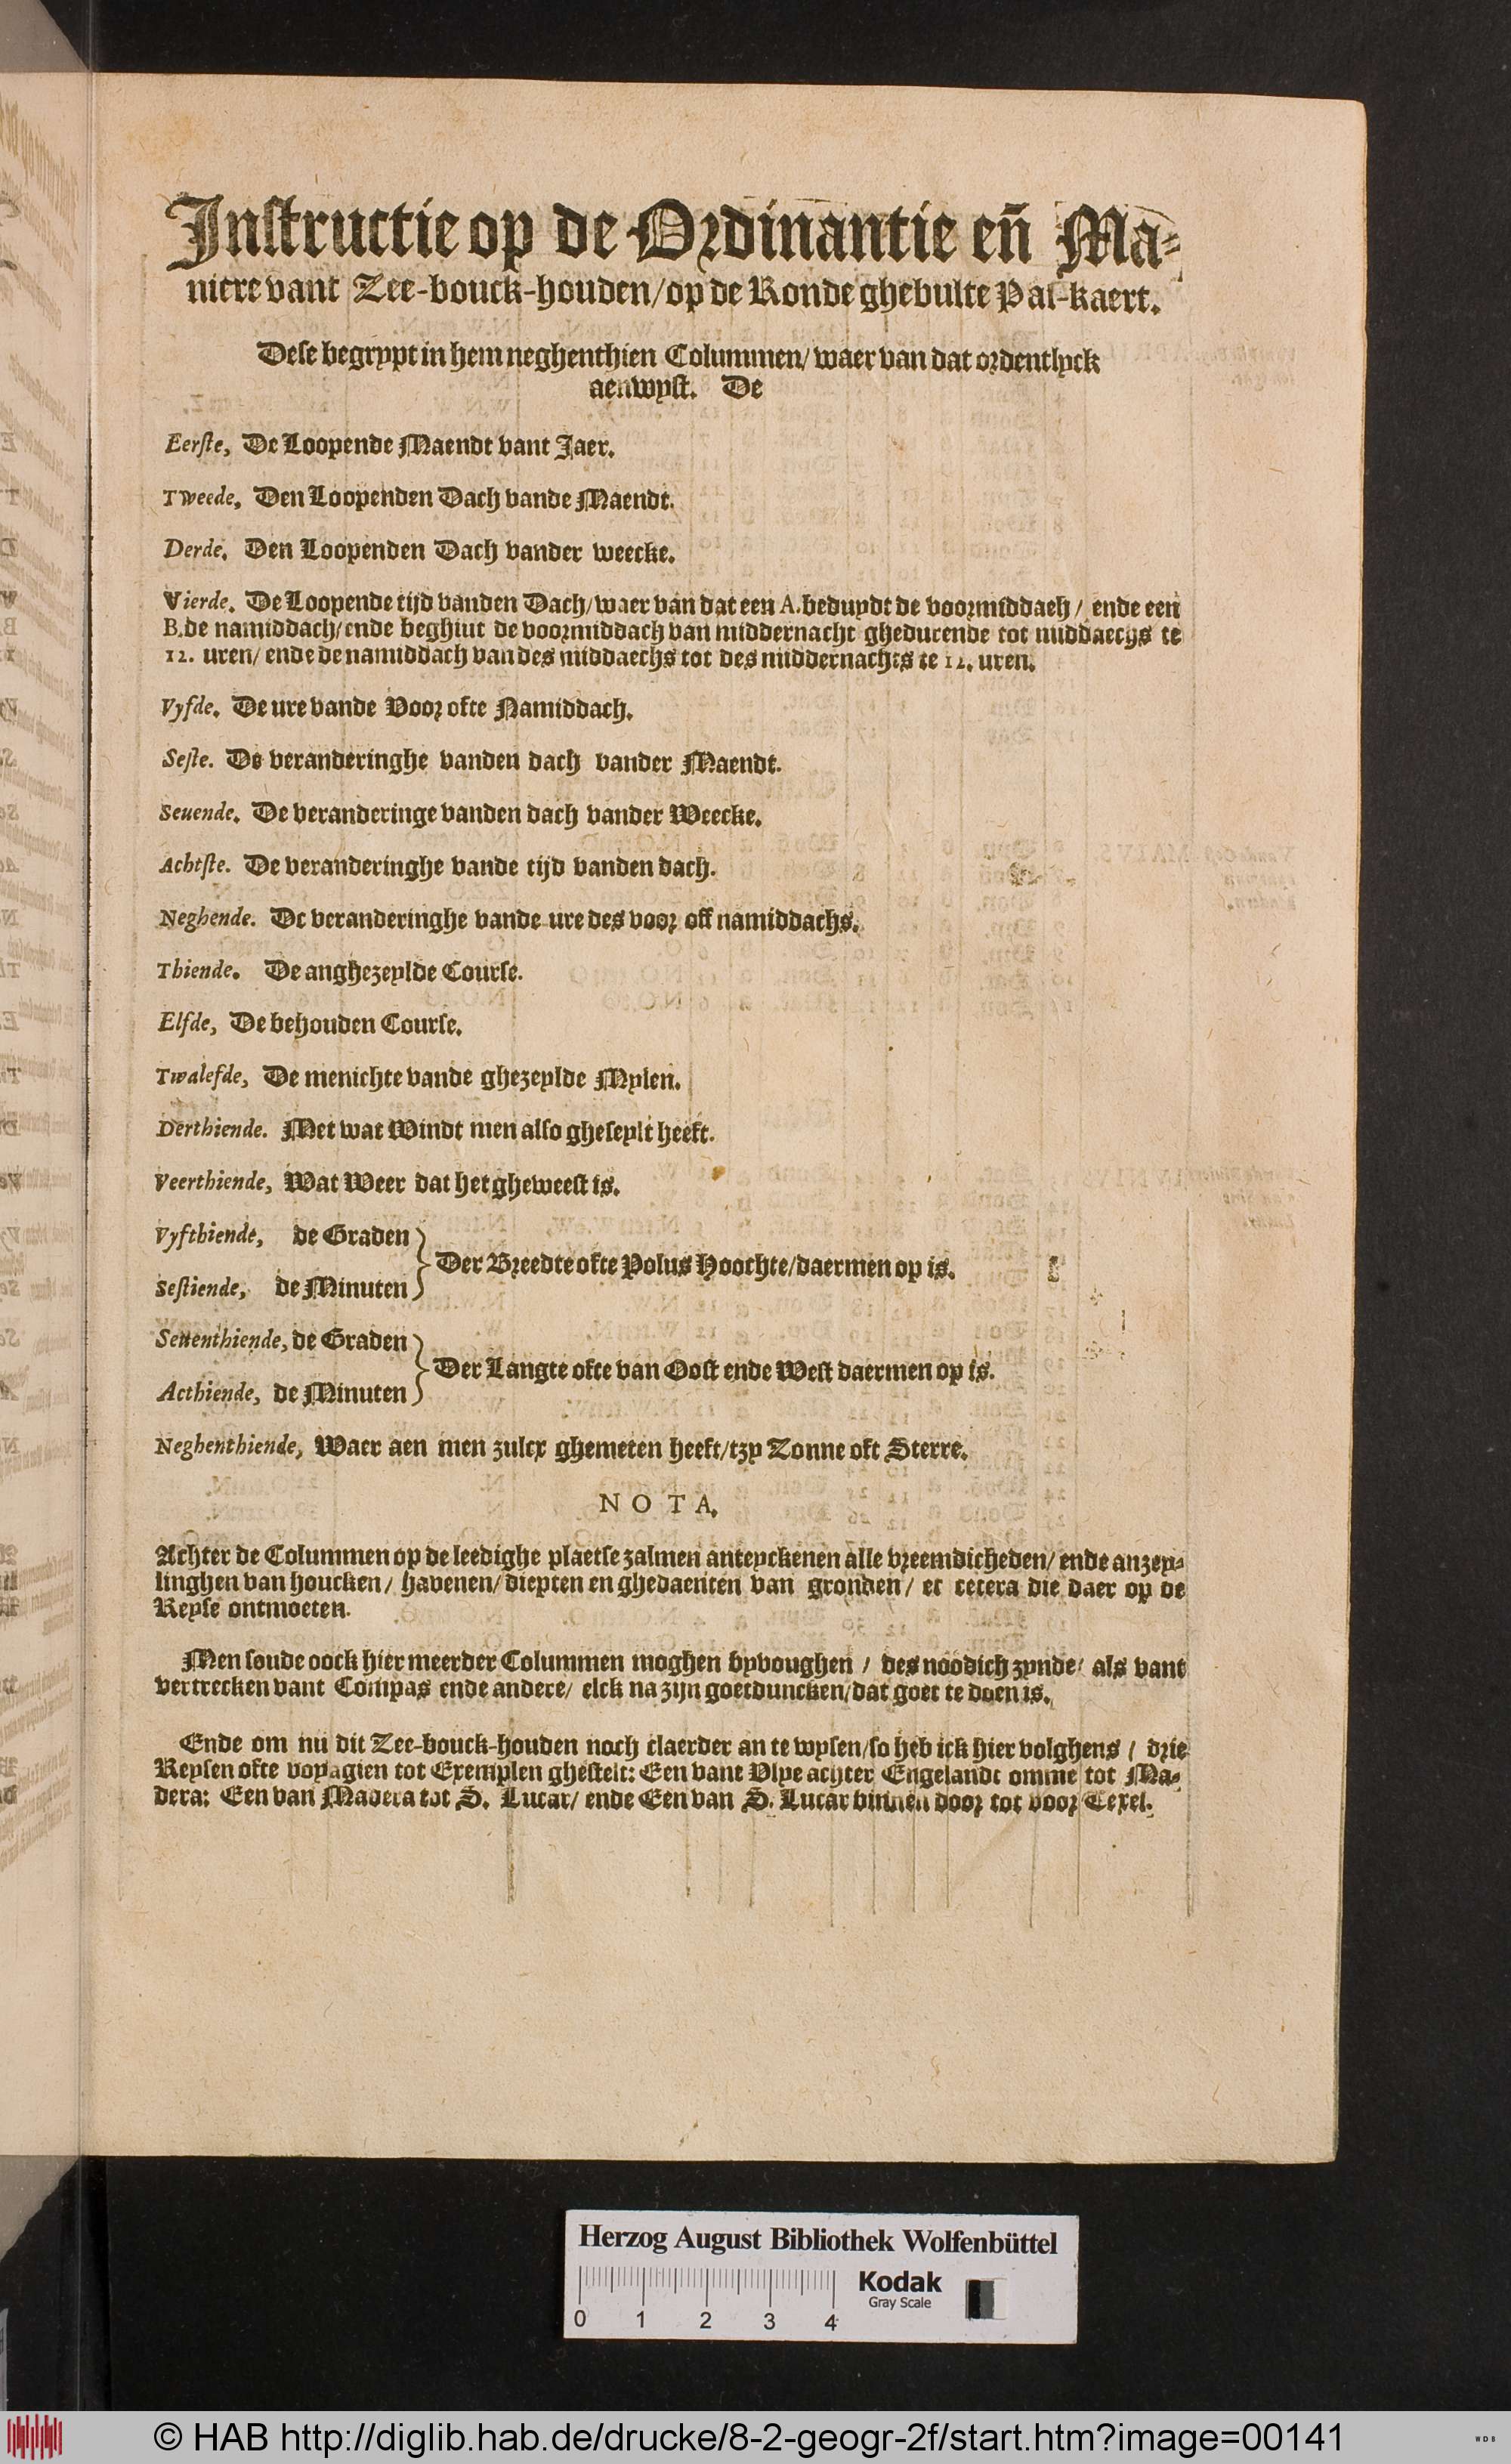 Instructie op de Ordinantie eñ Ma-
niere vant Zee-bouck-houden/ op de Ronde ghebulte Pas-kaert.
Dese begrypt in hem neghenthien Colummen/ waer van dat ordentlyck
aenwyst. De
Eerste, De Loopende Maendt vant Jaer.
Tweede. Den Loopenden Dach vande Maendt.
Derde. Den Loopenden Dach vander weecke.
Vierde. De Loopende tijd vanden Dach/ waer van dat een A. beduydt de voormiddach/ ende een
B. de namiddach/ ende beghint de voormiddach van middernacht ghedurende tot middaechs te
12. uren/ ende de namiddach van des middaechs tot des middernachts te 12. uren.
Vyfde. De ure vande Voor ofte Namiddach.
Seste. De veranderinghe vanden dach vander Maendt.
Seuende. De veranderinge vanden dach vander Weecke.
Achtste. De veranderinghe vande tijd vanden dach.
Neghende. De veranderinghe vande ure des voor off namiddachs.
Thiende. De anghezeylde Course.
Elfde, De behouden Course.
Twalefde, De menichte vande ghezeylde Mylen.
Derthiende. Met wat Windt men also gheseylt heeft.
Veerthiende, Wat Weer dat het gheweest is.
Vyfthiende, de Graden
Der Breedte ofte Polus Hoochte/ daermen op is.
Sestiende, de Minuten
Seuenthiende, de Graden
Der Langte ofte van Oost ende West daermen op is.
Acthiende, de Minuten
Neghenthiende, Waer aen men zulcx ghemeten heeft/ tzy Zonne oft Sterre.
NOTA.
Achter de Colummen op de leedighe plaetse zalmen anteyckenen alle vreemdicheden/ ende anzey-
linghen van houcken/ havenen/ diepten en ghedaenten van gronden/ et cetera die daer op de
Reyse ontmoeten.
Men soude oock hier meerder Colummen moghen byvoughen / des noodich zynde/ als vant
vertrecken vant Compas ende andere/ elck na zijn goetduncken/ dat goet te doen is.
Ende om nu dit Zee-bouck-houden noch claerder an te wysen/ so heb ick hier volghens / drie
Reysen ofte voyagien tot Exemplen ghestelt: Een vant Vlye achter Engelandt omme tot Ma-
dera: Een van Madera tot S. Lucar/ ende Een van S. Lucar binnen door tot voor Texel.
Herzog August Bibliothek Wolfenbüttel
Kodak
Gray Scale
0 1 2 3 4
© HAB http://diglib.hab.de/drucke/8-2-geogr-2f/start.htm?image=00141
WDB